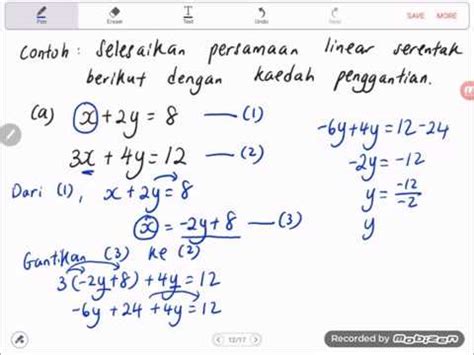 Eraser
Text
Undo
Contoh: Selesaikan persamaan linear serentak
berikut dengan kaedah penggantian.
(a) x + 2y = 8 — (1)
3x + 4y = 12 — (2)
Dari (1), x + 2y = 8
x = -2y + 8 — (3)
Gantikan (3) ke (2)
3(-2y + 8) + 4y = 12
-6y + 24 + 4y = 12
-6y + 4y = 12 - 24
-2y = -12
y = -12/-2
y
12/17
Recorded by Mobizen